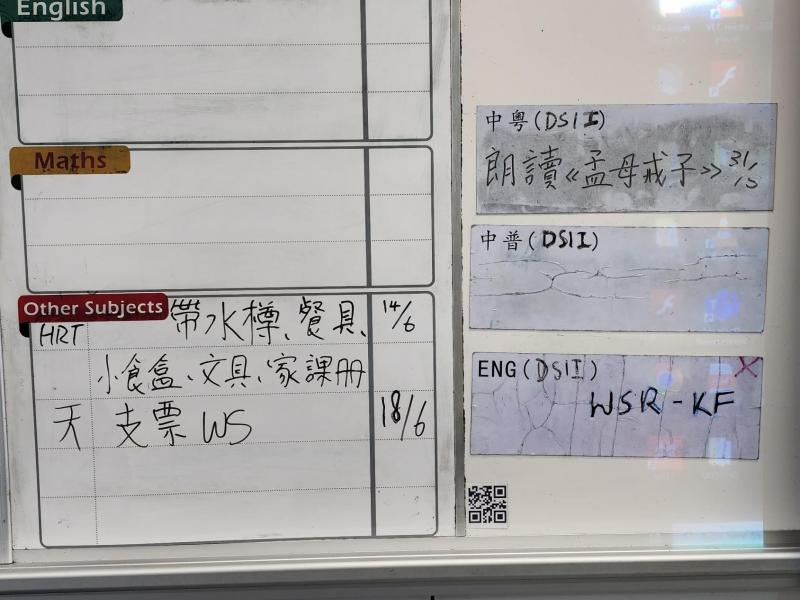 English
Maths
Other Subjects
HRT 帶水樽、餐具、 14/6
小食盒、文具、家課冊
天 支票 WS 18/6
中粵(DSII)
朗讀《孟母戒子》 31/
中普(DSII)
ENG(DSII)
WSR-KF